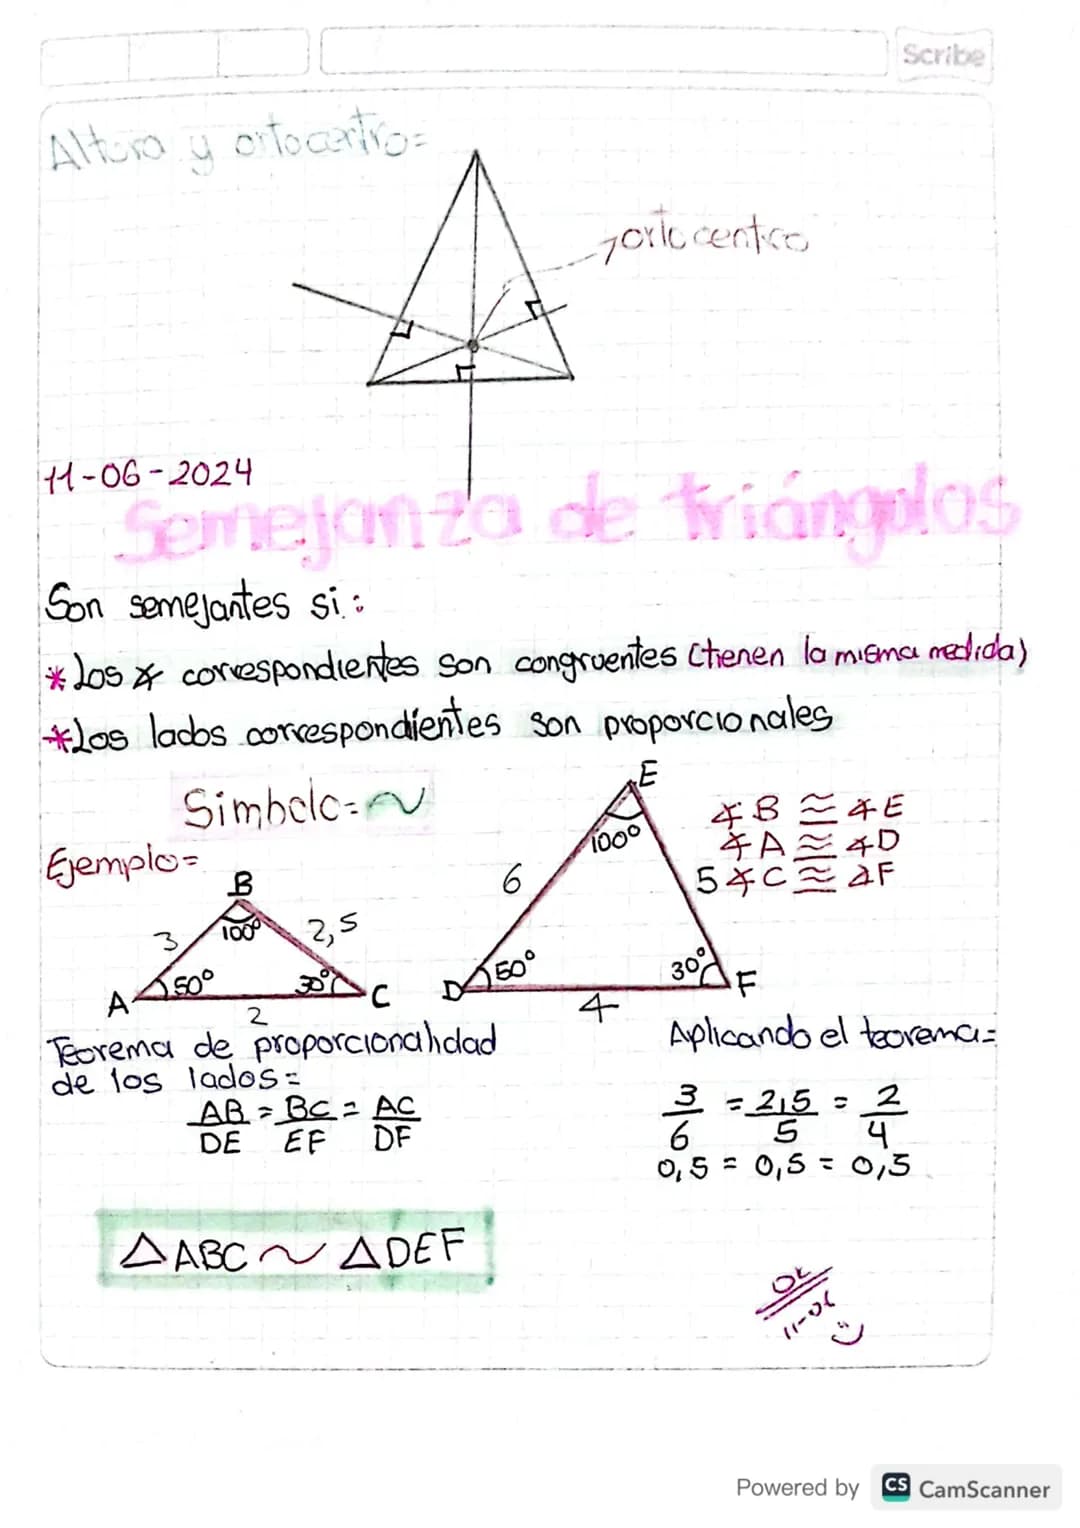 Scribe
Altura y ortocentro=
ortocentro
11-06-2024
Semejanza de triángulos
Son semejantes si:
*Los ∡ correspondientes son congruentes (tienen la misma medida)
*Los lados correspondientes son proporcionales
Simbolo=~
Ejemplo=
B
100°
3
2,5
A
50°
30°
C
2
E
100°
6
5
D
50°
30°
F
4
∡B ≅ ∡E
∡A ≅ ∡D
∡C ≅ ∡F
Teorema de proporcionalidad
de los lados=
AB/DE = BC/EF = AC/DF
Aplicando el teorema=
3/6 = 2,5/5 = 2/4
0,5 = 0,5 = 0,5
△ABC ~ △DEF
OK
11-06
Powered by CS CamScanner